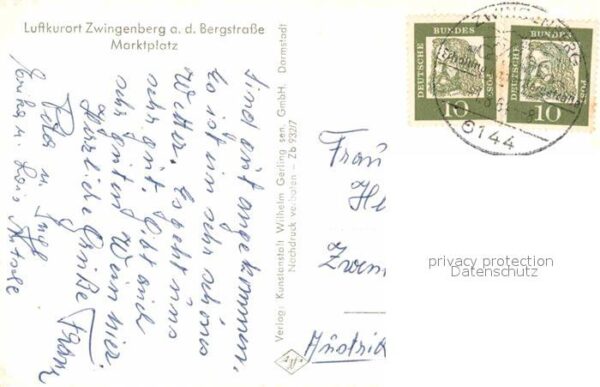 Luftkurort Zwingenberg a. d. Bergstraße
Marktplatz
Sind gut angekommen,
Es ist ein sehr schönes
Wetter. Es geht uns
sehr gut. Gibt auch
sehr guten Wein hier.
Herzliche Grüße Franz
Verlag: Kunstanstalt Wilhelm Gerling sen. GmbH. Darmstadt
Nachdruck verboten - Zb 932/7
DEUTSCHE BUNDES POST
10
DEUTSCHE BUNDES POST
10
ZWINGENBERG
6144
Frau
He
Zwem
Austri
privacy protection
Datenschutz